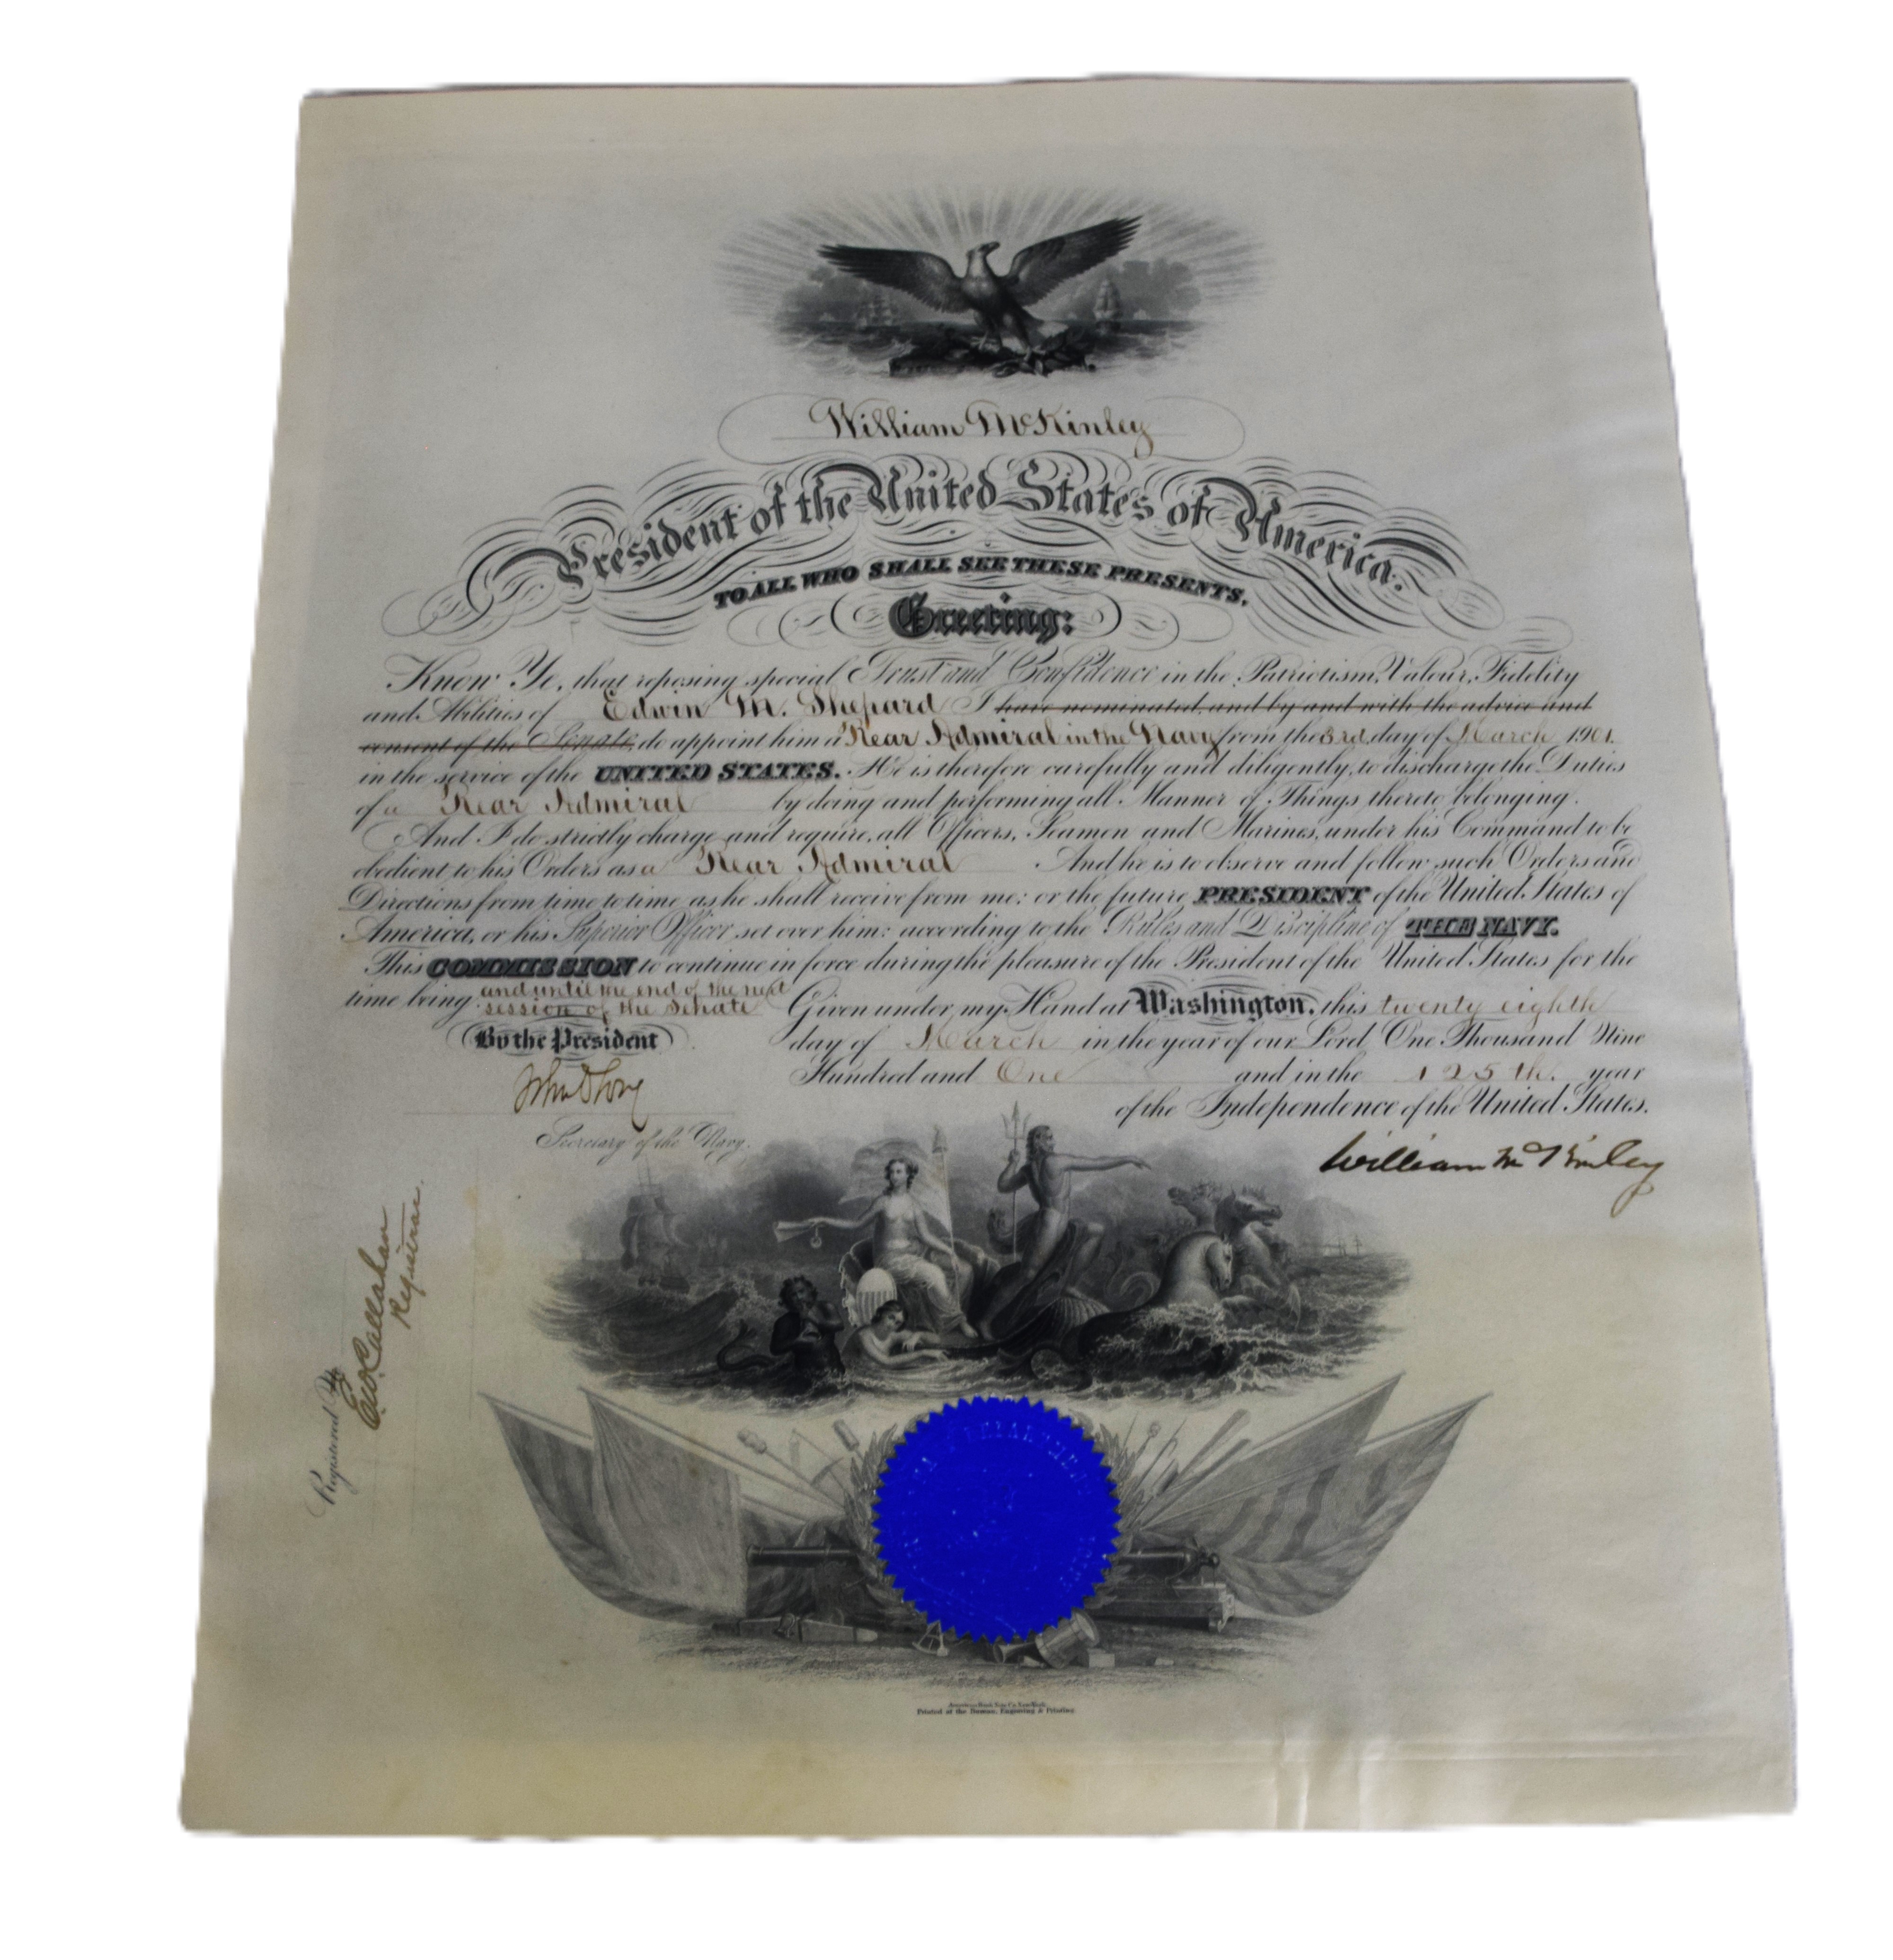 William McKinley
President of the United States of America.
TO ALL WHO SHALL SEE THESE PRESENTS,
Greeting:
Know Ye, that reposing special Trust and Confidence in the Patriotism, Valour, Fidelity
and Abilities of Edwin M. Shepard I have nominated and by and with the advice and
consent of the Senate, do appoint him a Rear Admiral in the Navy from the 3rd day of March 1901.
in the service of the UNITED STATES. He is therefore carefully and diligently, to discharge the Duties
of a Rear Admiral by doing and performing all Manner of Things thereto belonging.
And I do strictly charge and require, all Officers, Seamen and Marines, under his Command to be
obedient to his Orders as a Rear Admiral. And he is to observe and follow such Orders and
Directions from time to time, as he shall receive from me: or the future PRESIDENT of the United States of
America, or his Superior Officer set over him: according to the Rules and Discipline of THE NAVY.
This COMMISSION to continue in force during the pleasure of the President of the United States for the
time being. and until the end of the next
session of the Senate
Given under my Hand at Washington, this twenty eighth
day of March in the year of our Lord One Thousand Nine
Hundred and One and in the 125th. year
of the Independence of the United States.
By the President
John D Long
Secretary of the Navy.
William McKinley
Registered
Callahan
Registrar.
Printed at the Bureau, Engraving & Printing